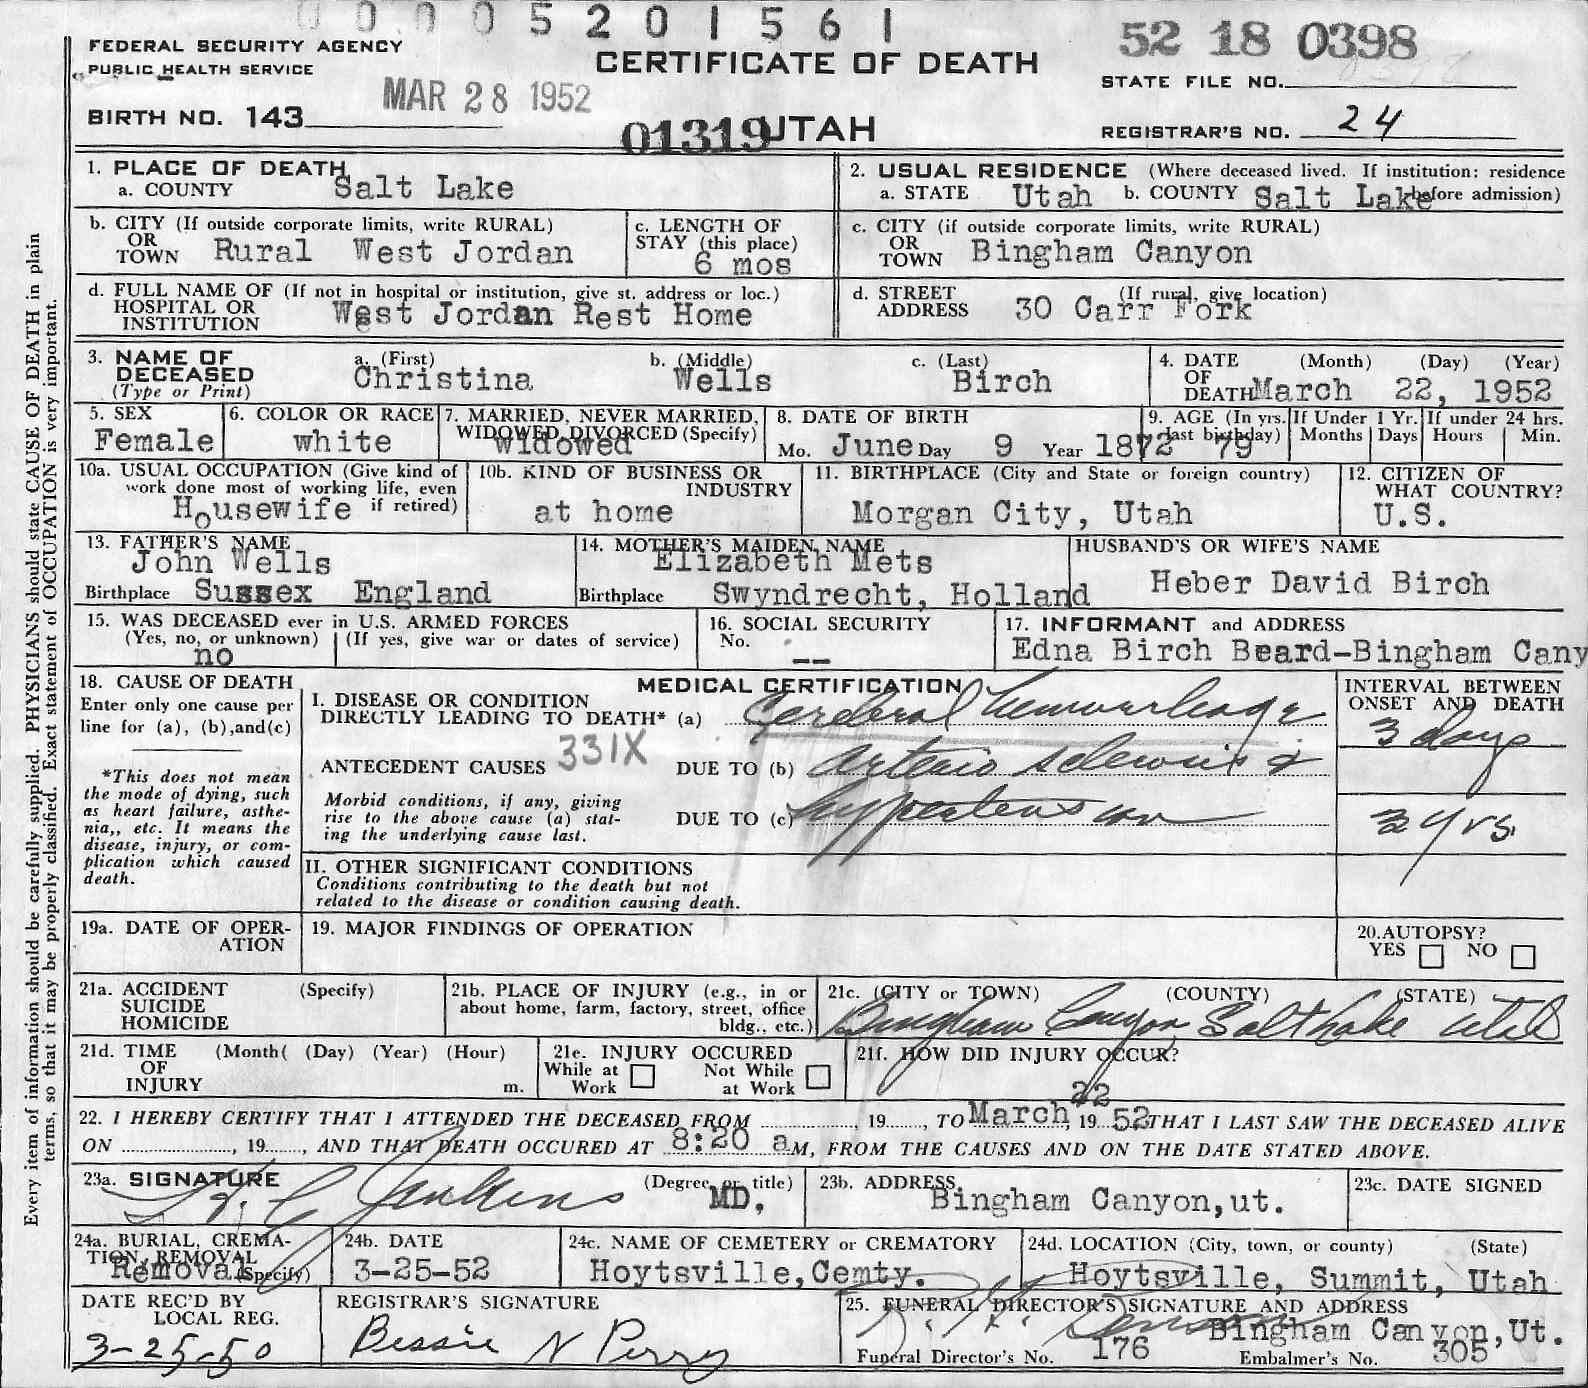 0 0 0 0 5 2 0 1 5 6 1
FEDERAL SECURITY AGENCY
PUBLIC HEALTH SERVICE
MAR 28 1952
BIRTH NO. 143
CERTIFICATE OF DEATH
01319 UTAH
52 18 0398
STATE FILE NO.
REGISTRAR'S NO. 24
Every item of information should be carefully supplied. PHYSICIANS should state CAUSE OF DEATH in plain
terms, so that it may be properly classified. Exact statement of OCCUPATION is very important.
1. PLACE OF DEATH
a. COUNTY Salt Lake
2. USUAL RESIDENCE (Where deceased lived. If institution: residence
a. STATE Utah b. COUNTY Salt Lake before admission)
b. CITY (If outside corporate limits, write RURAL)
OR
TOWN Rural West Jordan
c. LENGTH OF
STAY (this place)
6 mos
c. CITY (if outside corporate limits, write RURAL)
OR
TOWN Bingham Canyon
d. FULL NAME OF (If not in hospital or institution, give st. address or loc.)
HOSPITAL OR
INSTITUTION West Jordan Rest Home
d. STREET (If rural, give location)
ADDRESS 30 Carr Fork
3. NAME OF
DECEASED
(Type or Print)
a. (First)
Christina
b. (Middle)
Wells
c. (Last)
Birch
4. DATE (Month) (Day) (Year)
OF
DEATH March 22, 1952
5. SEX
Female
6. COLOR OR RACE
white
7. MARRIED, NEVER MARRIED,
WIDOWED, DIVORCED (Specify)
widowed
8. DATE OF BIRTH
Mo. June Day 9 Year 1872
9. AGE (In yrs.
last birthday)
79
If Under 1 Yr.
Months Days
If under 24 hrs.
Hours Min.
10a. USUAL OCCUPATION (Give kind of
work done most of working life, even
if retired)
Housewife
10b. KIND OF BUSINESS OR
INDUSTRY
at home
11. BIRTHPLACE (City and State or foreign country)
Morgan City, Utah
12. CITIZEN OF
WHAT COUNTRY?
U.S.
13. FATHER'S NAME
John Wells
Birthplace Sussex England
14. MOTHER'S MAIDEN NAME
Elizabeth Mets
Birthplace Swyndrecht, Holland
HUSBAND'S OR WIFE'S NAME
Heber David Birch
15. WAS DECEASED ever in U.S. ARMED FORCES
(Yes, no, or unknown) (If yes, give war or dates of service)
no
16. SOCIAL SECURITY
No. --
17. INFORMANT and ADDRESS
Edna Birch Beard-Bingham Cany
18. CAUSE OF DEATH
Enter only one cause per
line for (a), (b),and(c)
*This does not mean
the mode of dying, such
as heart failure, asthe-
nia,, etc. It means the
disease, injury, or com-
plication which caused
death.
MEDICAL CERTIFICATION
I. DISEASE OR CONDITION
DIRECTLY LEADING TO DEATH* (a) Cerebral hemorrhage
331X
ANTECEDENT CAUSES DUE TO (b) arterio sclerosis &
Morbid conditions, if any, giving
rise to the above cause (a) stat-
ing the underlying cause last.
DUE TO (c) hypertension
INTERVAL BETWEEN
ONSET AND DEATH
3 days
3 yrs.
II. OTHER SIGNIFICANT CONDITIONS
Conditions contributing to the death but not
related to the disease or condition causing death.
19a. DATE OF OPER-
ATION
19. MAJOR FINDINGS OF OPERATION
20.AUTOPSY?
YES NO
21a. ACCIDENT (Specify)
SUICIDE
HOMICIDE
21b. PLACE OF INJURY (e.g., in or
about home, farm, factory, street, office
bldg., etc.)
21c. (CITY or TOWN) (COUNTY) (STATE)
Bingham Canyon Salt Lake Utah
21d. TIME (Month( (Day) (Year) (Hour)
OF
INJURY m.
21e. INJURY OCCURED
While at Work Not While at Work
21f. HOW DID INJURY OCCUR?
22. I HEREBY CERTIFY THAT I ATTENDED THE DECEASED FROM , 19 , TO March 22, 19 52 THAT I LAST SAW THE DECEASED ALIVE
ON , 19 , AND THAT DEATH OCCURED AT 8:20 a M, FROM THE CAUSES AND ON THE DATE STATED ABOVE.
23a. SIGNATURE (Degree or title)
Jenkins MD.
23b. ADDRESS
Bingham Canyon,ut.
23c. DATE SIGNED
24a. BURIAL, CREMA-
TION, REMOVAL
Removal (Specify)
24b. DATE
3-25-52
24c. NAME OF CEMETERY or CREMATORY
Hoytsville,Cemty.
24d. LOCATION (City, town, or county) (State)
Hoytsville, Summit, Utah
DATE REC'D BY
LOCAL REG.
3-25-50
REGISTRAR'S SIGNATURE
Bessie N Perry
25. FUNERAL DIRECTOR'S SIGNATURE AND ADDRESS
Bingham Canyon,Ut.
Funeral Director's No. 176 Embalmer's No. 305